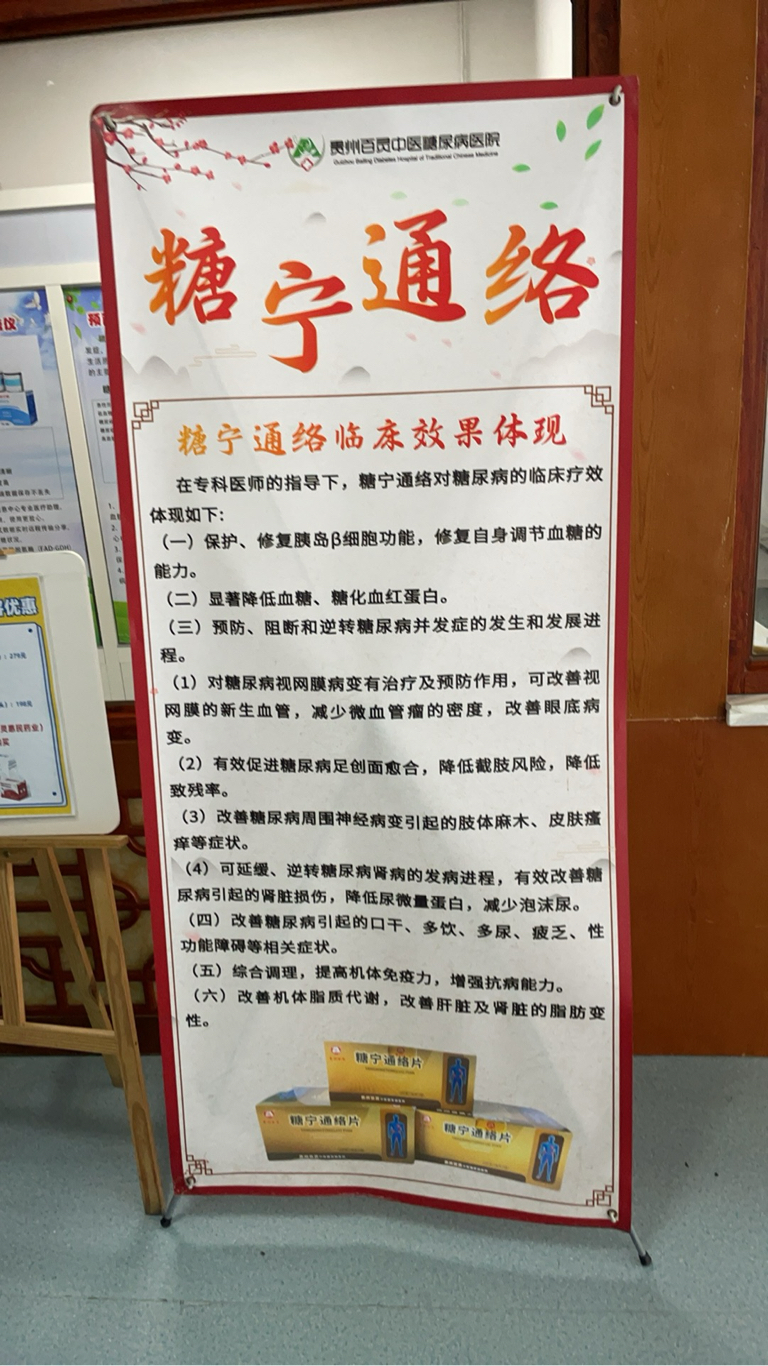 贵州百灵中医糖尿病医院
Guizhou Bailing Diabetes Hospital of Traditional Chinese Medicine
糖宁通络
糖宁通络临床效果体现
在专科医师的指导下，糖宁通络对糖尿病的临床疗效
体现如下:
（一）保护、修复胰岛β细胞功能，修复自身调节血糖的
能力。
（二）显著降低血糖、糖化血红蛋白。
（三）预防、阻断和逆转糖尿病并发症的发生和发展进
程。
（1）对糖尿病视网膜病变有治疗及预防作用，可改善视
网膜的新生血管，减少微血管瘤的密度，改善眼底病
变。
（2）有效促进糖尿病足创面愈合，降低截肢风险，降低
致残率。
（3）改善糖尿病周围神经病变引起的肢体麻木、皮肤瘙
痒等症状。
（4）可延缓、逆转糖尿病肾病的发病进程，有效改善糖
尿病引起的肾脏损伤，降低尿微量蛋白，减少泡沫尿。
（四）改善糖尿病引起的口干、多饮、多尿、疲乏、性
功能障碍等相关症状。
（五）综合调理，提高机体免疫力，增强抗病能力。
（六）改善机体脂质代谢，改善肝脏及肾脏的脂肪变
性。
糖宁通络片
糖宁通络片
糖宁通络片
优惠
：279元
：198元